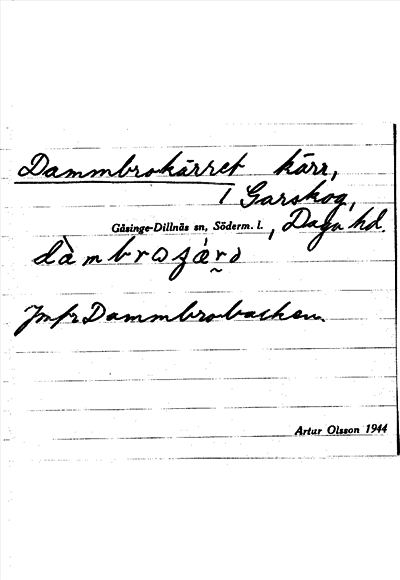 Dammbrokärret kärr,
i Garskog,
Gåsinge-Dillnäs sn, Söderm. l., Daga hd.
dàmbrɷɟæ̀rə
Jmfr Dammbrobacken.
Artur Olsson 1944